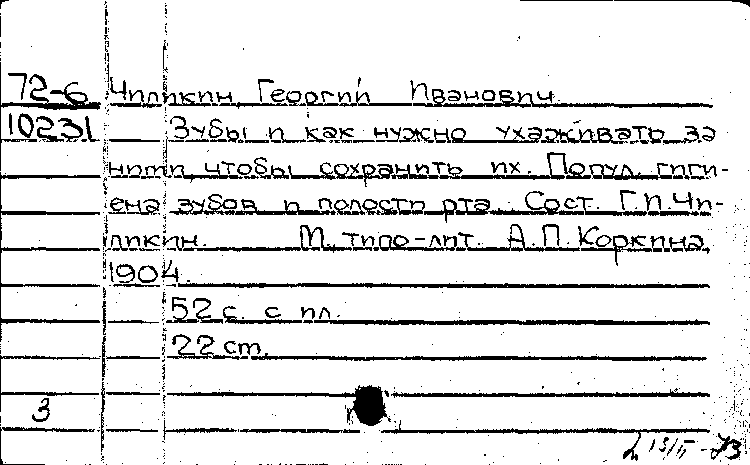 72-6 Чиликин, Георгий Иванович
10231 Зубы и как нужно ухаживать за
ними, чтобы сохранить их. Попул. гиги-
ена зубов и полости рта. Сост. Г.И.Чи-
ликин. М., типо-лит. А.П. Коркина,
1904.
52 с. с ил.
22 см.
3